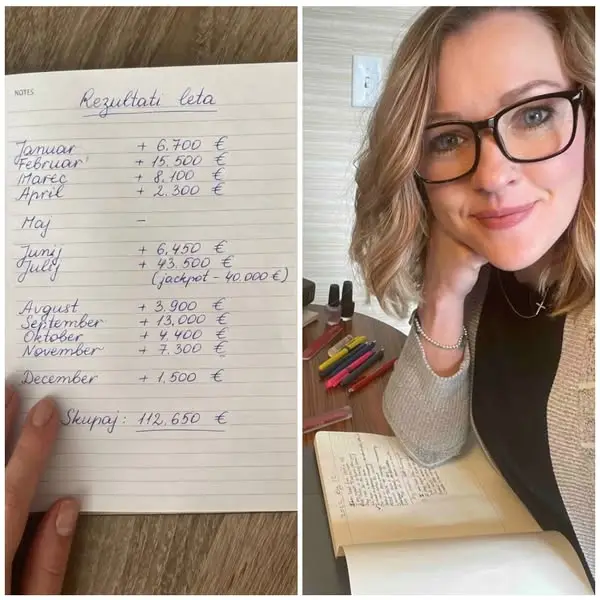 NOTES
Rezultati leta
Januar + 6.700 €
Februar + 15.500 €
Marec + 8.100 €
April + 2.300 €
Maj -
Junij + 6.450 €
Julij + 43.500 €
(jackpot - 40.000 €)
Avgust + 3.900 €
September + 13.000 €
Oktober + 4.400 €
November + 7.300 €
December + 1.500 €
Skupaj: 112.650 €